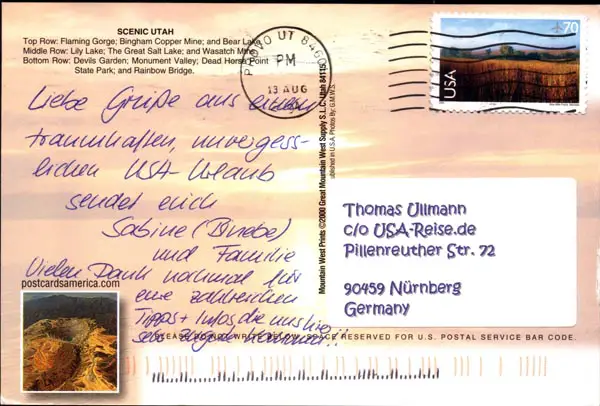 SCENIC UTAH
Top Row: Flaming Gorge; Bingham Copper Mine; and Bear Lake
Middle Row: Lily Lake; The Great Salt Lake; and Wasatch Mtns
Bottom Row: Devils Garden; Monument Valley; Dead Horse Point
State Park; and Rainbow Bridge.
PROVO UT 8460
PM
13 AUG
70
USA
Liebe Grüße aus einem
traumhaften, unvergess-
lichen USA-Urlaub
sendet euch
Sabine (Binebe)
und Familie
Vielen Dank nochmal für
eine zahlreichen
Tipps + Infos, die uns hier
sehr zugute kommen!!
Mountain West Prints ©2000 Great Mountain West Supply S.L.C. Utah 84115
ublished in U.S.A. Photos By: G.M.W.S.
Thomas Ullmann
c/o USA-Reise.de
Pillenreuther Str. 72
90459 Nürnberg
Germany
postcardsamerica.com
SPACE RESERVED FOR U.S. POSTAL SERVICE BAR CODE.